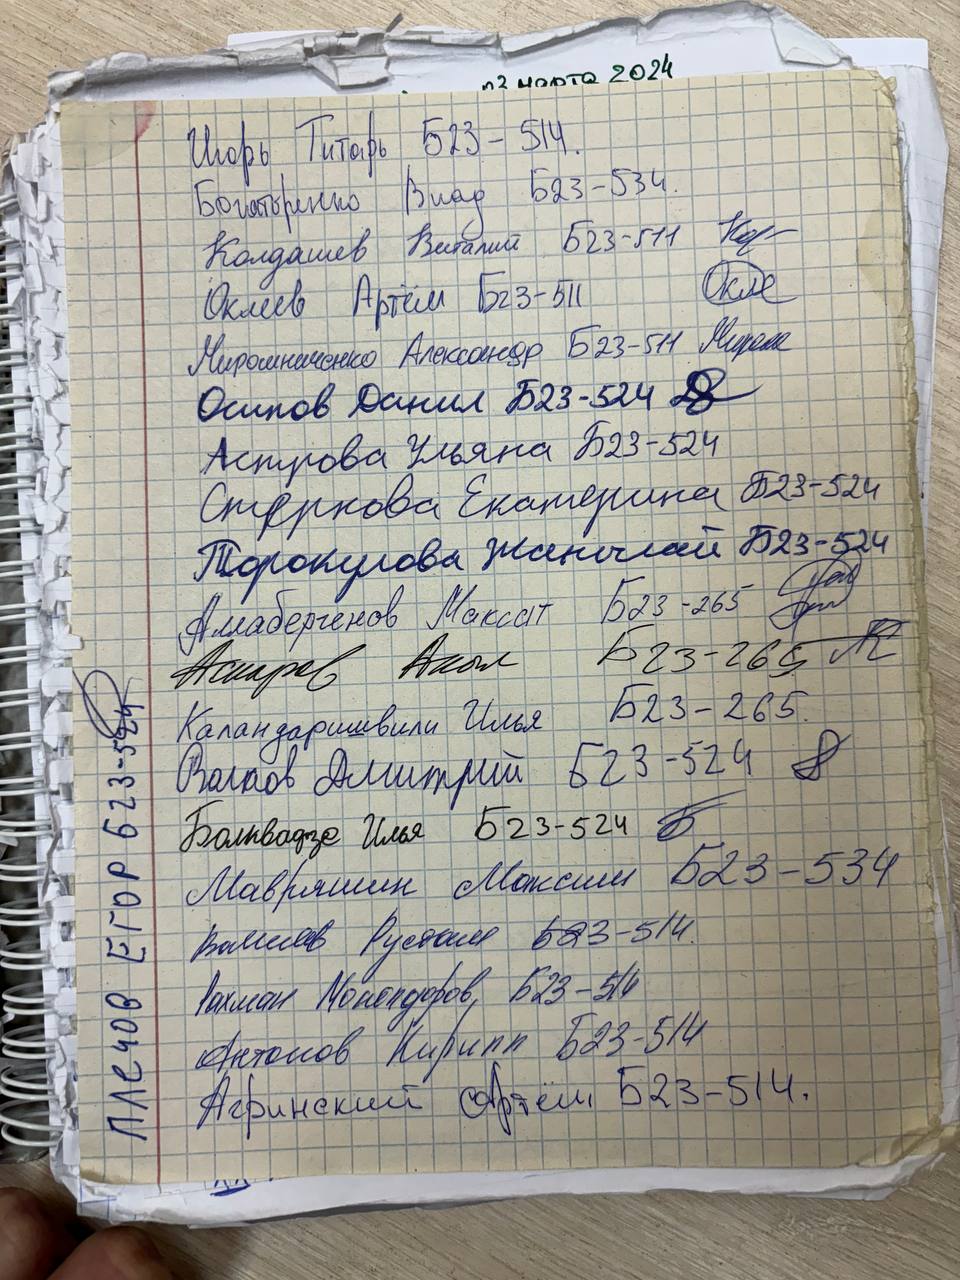 03 марта 2024
Игорь Титарь Б23-514.
Богатыренко Влад Б23-534.
Колдашев Виталий Б23-511
Оклеев Артём Б23-511 Окле
Мирошниченко Александр Б23-511
Осипов Данил Б23-524
Астрова Ульяна Б23-524
Стеркова Екатерина Б23-524
Торокулова Жанылай Б23-524
Аллабергенов Максат Б23-265
Аскаров Акыл Б23-265
Каландаришвили Илья Б23-265.
Волков Дмитрий Б23-524
Болквадзе Илья Б23-524
Мавряшин Максим Б23-534
Валиев Рустам Б23-514.
Рахман Б23-514
Антонов Кирилл Б23-514
Агринский Артём Б23-514.
ПЛЕЧОВ ЕГОР Б23-524